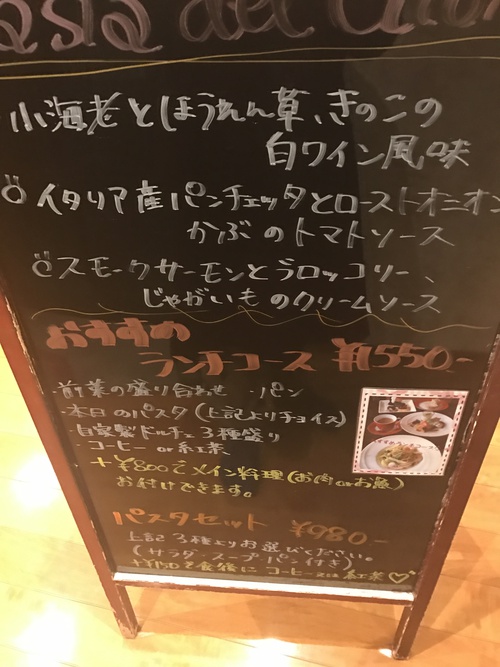 Pasta del Giorno
小海老とほうれん草、きのこの
白ワイン風味
イタリア産パンチェッタとローストオニオン
かぶのトマトソース
スモークサーモンとブロッコリー、
じゃがいものクリームソース
おすすめ
ランチコース ¥1550-
・前菜の盛り合わせ ・パン
・本日のパスタ(上記よりチョイス)
・自家製ドルチェ3種盛り
・コーヒー or 紅茶、
+¥800でメイン料理(お肉orお魚)
お付けできます。
パスタセット ¥980-
上記3種よりお選びください。
(サラダ・スープ パン付き)
+¥150で食後に コーヒー又は紅茶♡